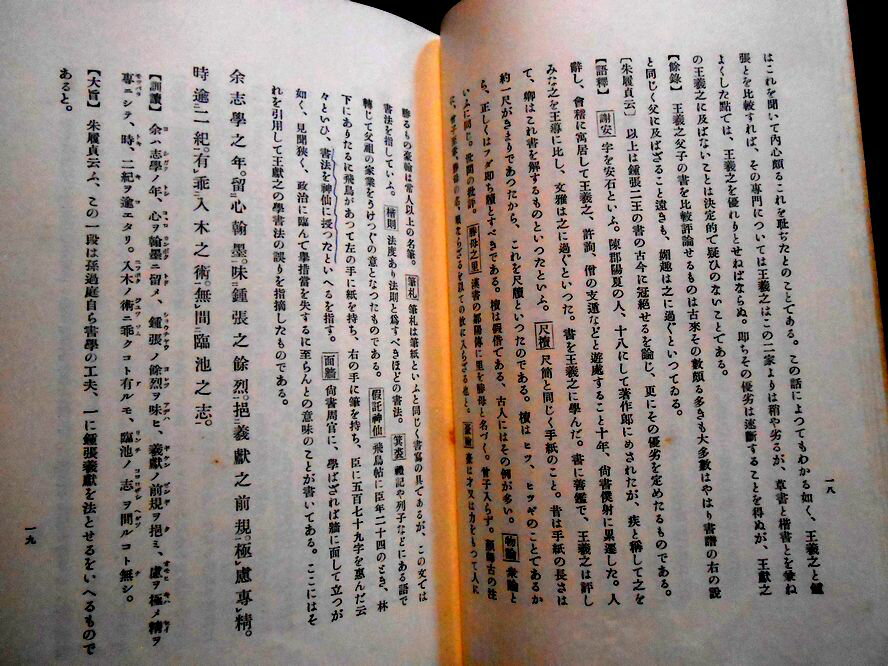 はこれを聞いて内心頗るこれを耻ぢたとのことである。この話によつてもわかる如く、王羲之と鍾
張とを比較すれば、その専門については王羲之はこの二家よりは稍や劣るが、草書と楷書とを兼ね
よくした點では、王羲之を優れりとせねばならぬ。即ちその優劣は速斷することを得ぬが、王獻之
の王羲之に及ばないことは決定的で疑ひのないことである。
【餘錄】王羲之父子の書を比較評論せるものは古來その數頗る多きも大多數はやはり書譜の右の說
と同じく父に及ばざること遠きも、媚趣は之に過ぐといつてゐる。
【朱履貞云】以上は鍾張二王の書の古今に冠絕せるを論じ、更にその優劣を定めたるものである。
【語釋】謝安 字を安石といふ。陳郡陽夏の人、十八にして著作郎にめされたが、疾と稱して之を
辭し、會稽に寓居して王羲之、許詢、僧の支遁などと遊處すること十年、尙書僕射に累遷した。人
みな之を王導に比し、文雅は之に過ぐといつた。書を王羲之に學んだ。書に善鑑で、王羲之は評し
て、卿はこれ書を解するものといつたといふ。尺牘 尺簡と同じく手紙のこと。昔は手紙の長さは
約一尺がきまりであつたから、これを尺牘といつたのである。檀はヒツ、ヒツギのことであるか
ら、正しくはフダ即ち牘とすべきである。檀は假借である、古人にはその例が多い。物論 衆論と
いふに同じ。世間の批評。勝母之里 漢書の鄒陽傳に里を勝母と名づく。曾子入らず。顏師古の注
一八
勝るもの豪翰は常人以上の名筆。筆札 筆札は筆紙といふと同じく書寫の具であるが、この文では
書法を指していふ。楷則 法度あり法則と爲すべきほどの書法。箕裘 禮記や列子などにある語で
轉じて父祖の家業をうけつぐの意となつたものである。假託神仙 飛鳥帖に臣年二十四のとき、林
下にありたるに飛鳥があつて左の手に紙を持ち、右の手に筆を持ち、臣に五百七十九字を惠んだ云
々といひ、書法を神仙に授つたといへるを指す。面牆 尙書周官に、學ばざれば牆に面して立つが
如く、見聞狹く、政治に臨んで擧措當を失するに至らんとの意味のことが書いてある。ここにはそ
れを引用して王獻之の學書法の誤りを指摘したものである。
余志學之年。留心翰墨。味鍾張之餘烈。挹羲獻之前規。極慮專精。
時逾二紀。有乖入木之術。無間臨池之志。
【訓讀】余ハ志學ノ年、心ヲ翰墨ニ留メ、鍾張ノ餘烈ヲ味ヒ、羲獻ノ前規ヲ挹ミ、慮ヲ極メ精ヲ
專ニシテ、時、二紀ヲ逾エタリ。入木ノ術ニ乖クコト有ルモ、臨池ノ志ヲ間ルコト無シ。
【大旨】朱履貞云ふ、この一段は孫過庭自ら書學の工夫、一に鍾張羲獻を法とせるをいへるもので
あると。
一九